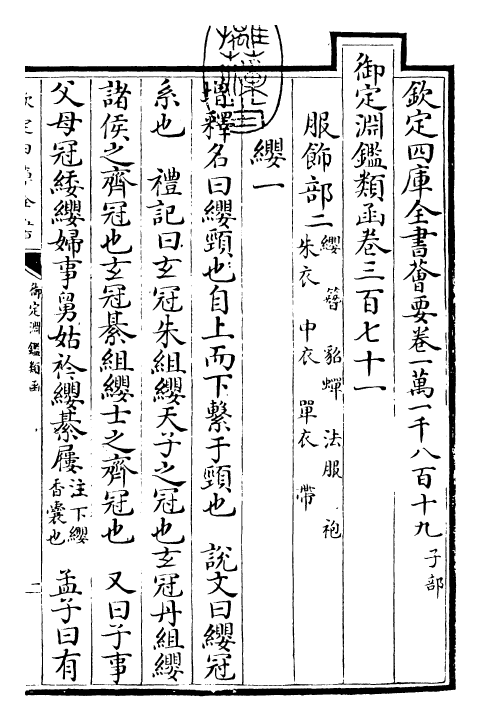 欽定四庫全書薈要卷一萬一千八百十九 子部
御定淵鑑類函卷三百七十一
服飾部二 纓 簪 貂蟬 法服 袍
朱衣 中衣 單衣 帶
纓一
增釋名曰纓頸也自上而下繫于頸也 說文曰纓冠
系也 禮記曰玄冠朱組纓天子之冠也玄冠丹組纓
諸侯之齊冠也玄冠綦組纓士之齊冠也 又曰子事
父母冠緌纓婦事舅姑衿纓綦屨 注下纓
香囊也 孟子曰有
欽定四庫全書
御定淵鑑類函